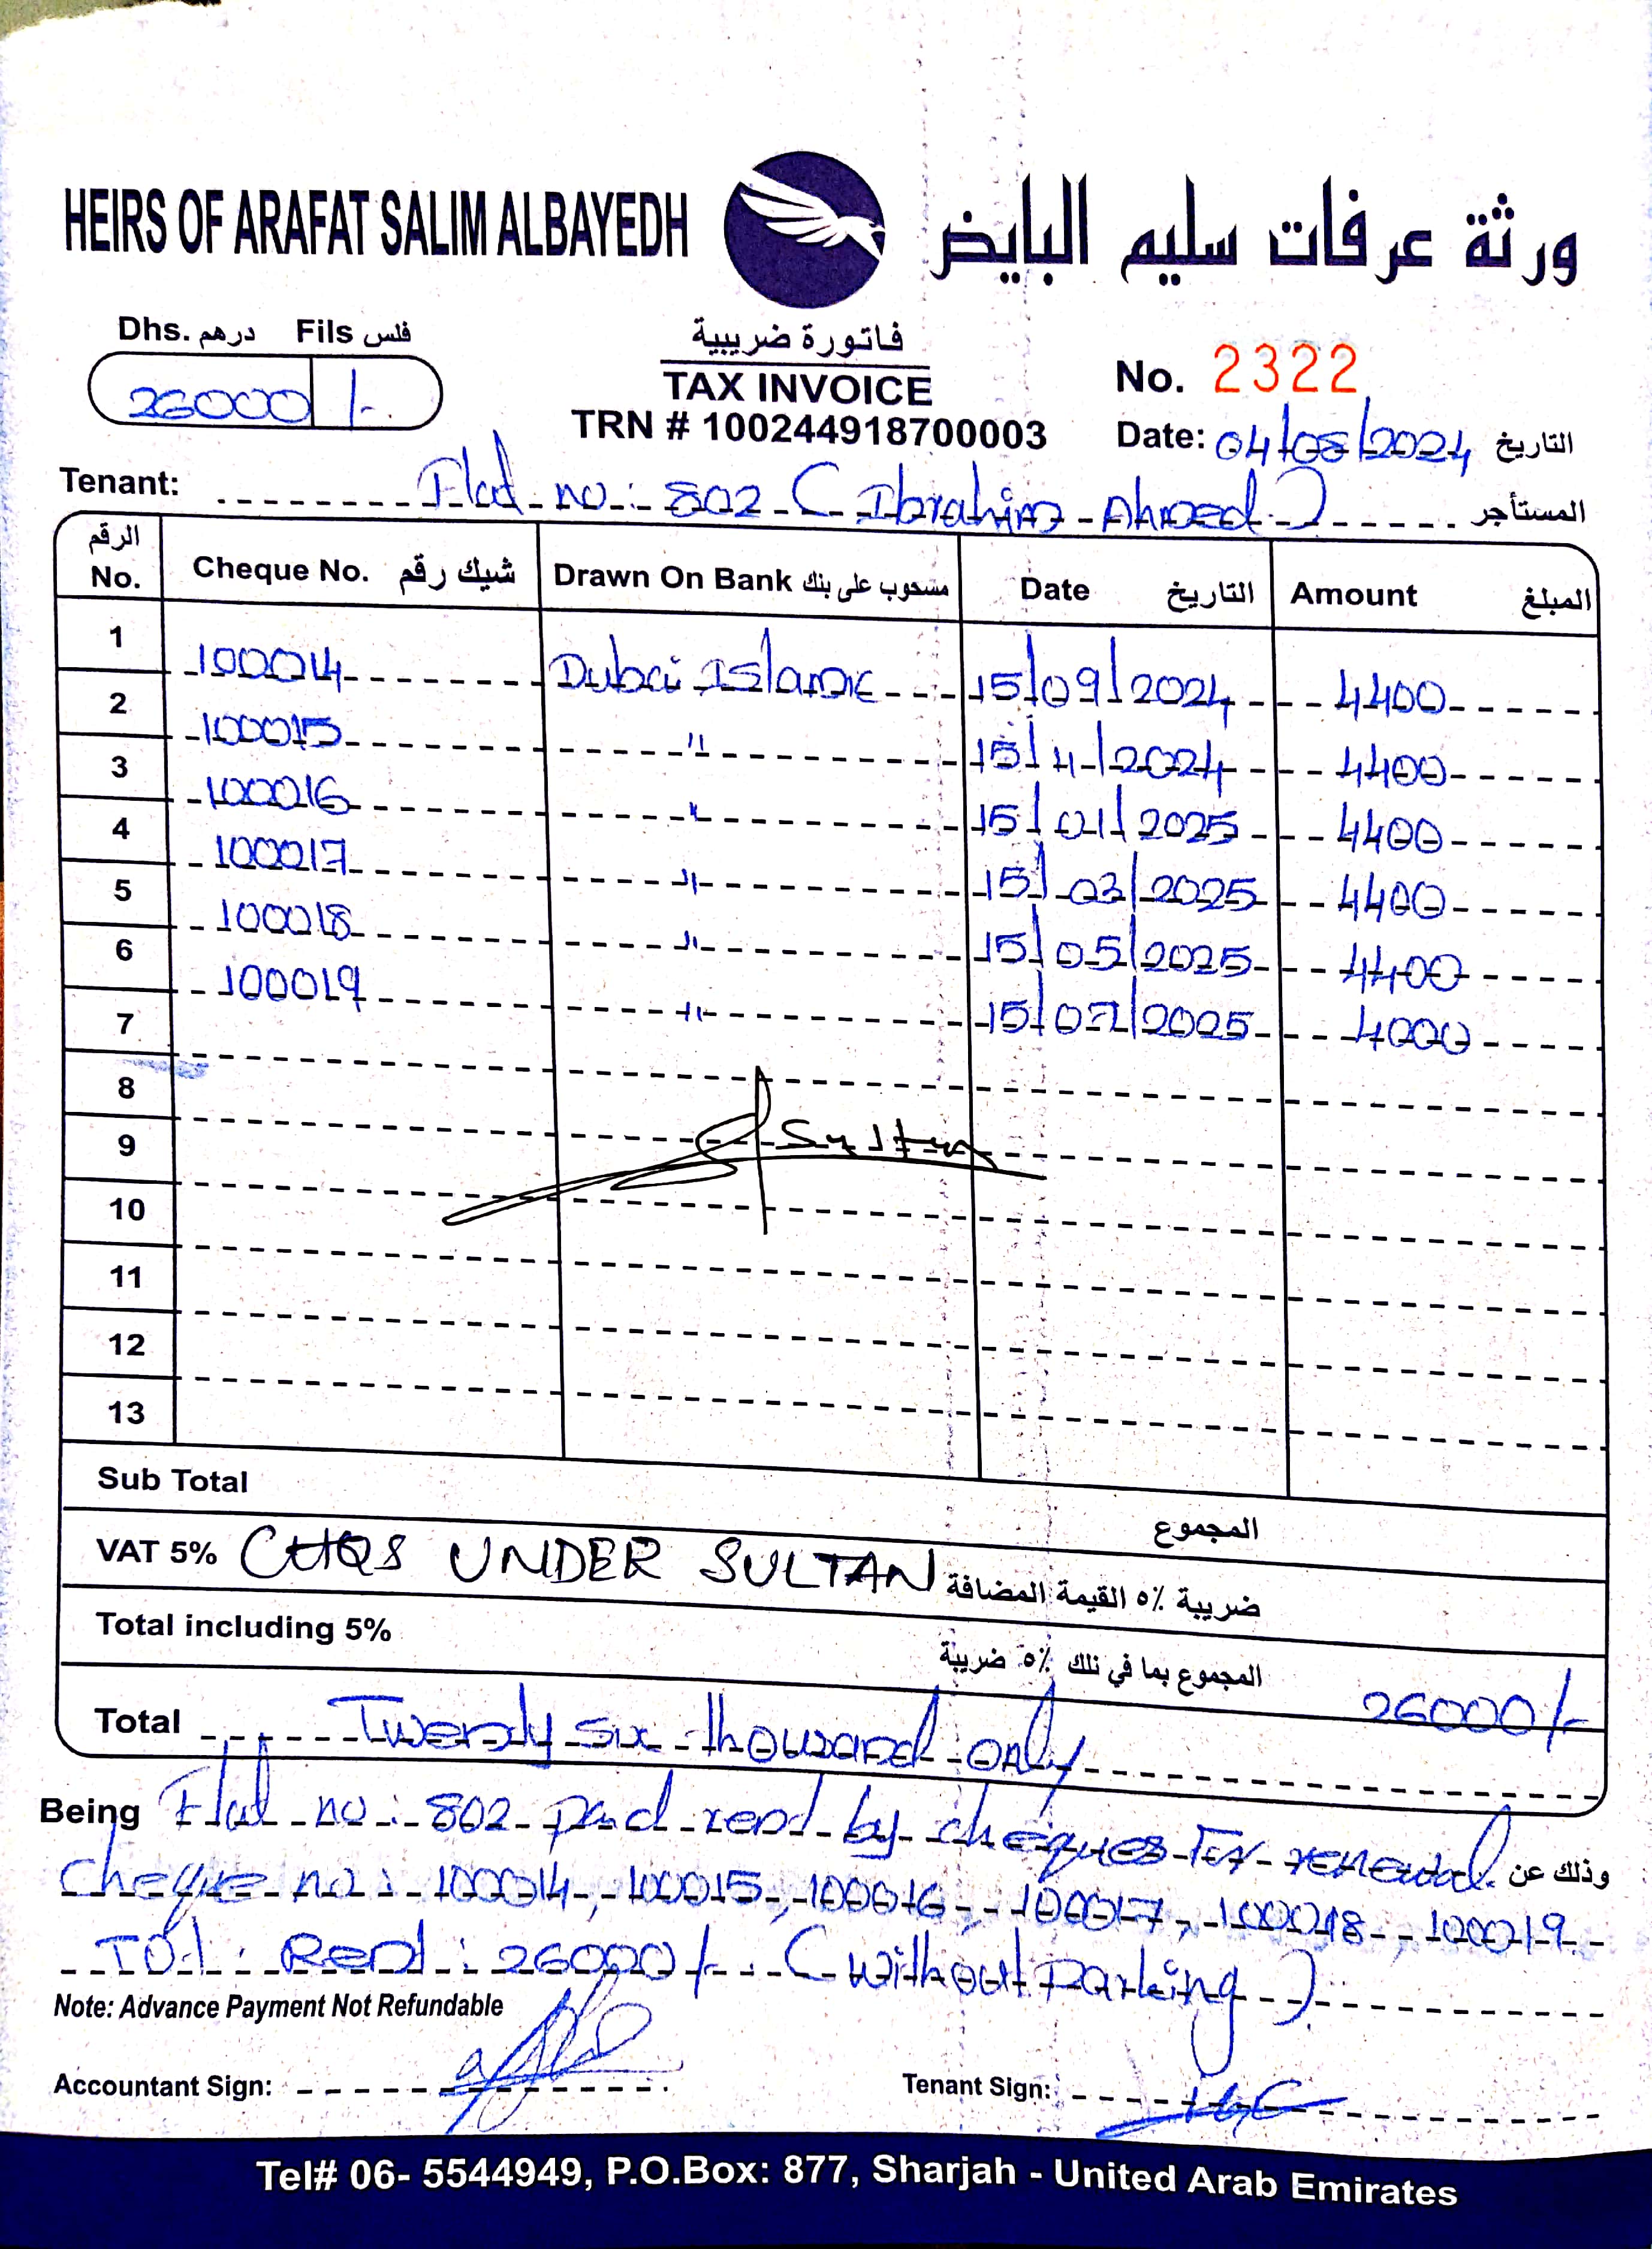 HEIRS OF ARAFAT SALIM ALBAYEDH ورثة عرفات سليم البايض
Dhs. درهم Fils فلس
26000 /-
فاتورة ضريبية
TAX INVOICE
TRN # 100244918700003
No. 2322
Date: 04/08/2024 التاريخ
Tenant: Flat no: 802 (Ibrahim Ahmed) المستأجر
الرقم No. Cheque No. شيك رقم Drawn On Bank مسحوب على بنك Date التاريخ Amount المبلغ
1 100014 Dubai Islamic 15/09/2024 4400
2 100015 " 15/11/2024 4400
3 100016 " 15/01/2025 4400
4 100017 " 15/03/2025 4400
5 100018 " 15/05/2025 4400
6 100019 " 15/07/2025 4000
7
8
9 Sultan
10
11
12
13
Sub Total المجموع
VAT 5% CHQS UNDER SULTAN ضريبة ٥٪ القيمة المضافة
Total including 5% المجموع بما في ذلك ٥٪ ضريبة 26000/-
Total Twenty six thousand only
Being Flat no: 802 paid rent by cheques For renewal. وذلك عن
Cheque no: 100014, 100015, 100016, 100017, 100018, 100019.
Tot: Rent: 26000/-. (without Parking)
Note: Advance Payment Not Refundable
Accountant Sign:
Tenant Sign:
Tel# 06- 5544949, P.O.Box: 877, Sharjah - United Arab Emirates